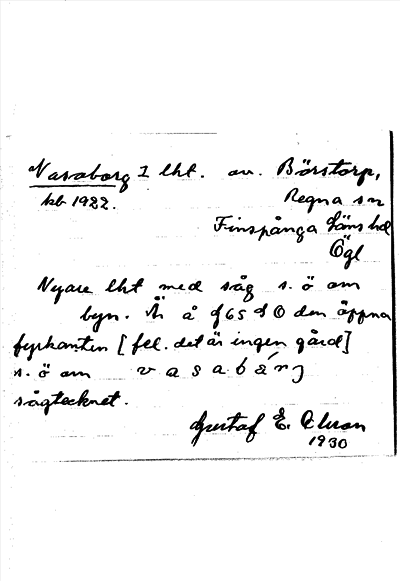 Vasaborg 1 lht. av. Börstorp,
kb 1922. Regna sn
Finspånga läns hd
Ögl
Nyare lht med såg s. ö om
byn. Är å f 65 d O den öppna
fyrkanten [fel. det är ingen gård]
s. ö om vasabårj
sågtecknet.
Gustaf E. Olson
1930